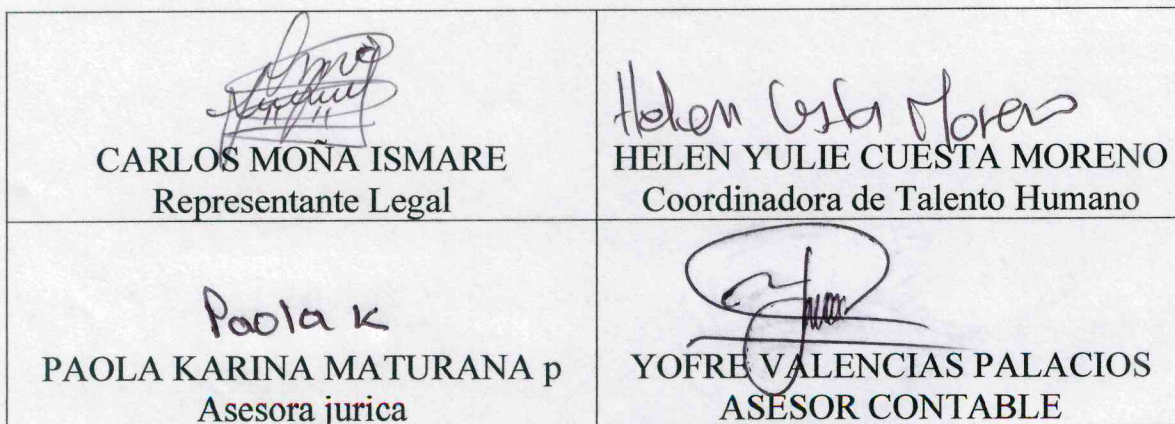 CARLOS MOÑA ISMARE
Representante Legal
Helen Cuesta Moreno
HELEN YULIE CUESTA MORENO
Coordinadora de Talento Humano
Paola K
PAOLA KARINA MATURANA p
Asesora jurica
YOFRE VALENCIAS PALACIOS
ASESOR CONTABLE